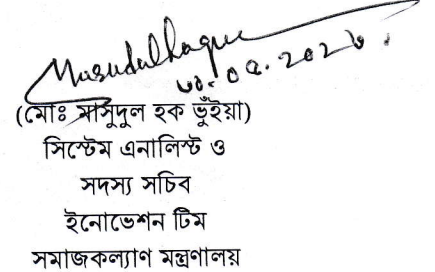 Masudulhaque
(মোঃ মাসুদুল হক ভুঁইয়া)
সিস্টেম এনালিস্ট ও
সদস্য সচিব
ইনোভেশন টিম
সমাজকল্যাণ মন্ত্রণালয়